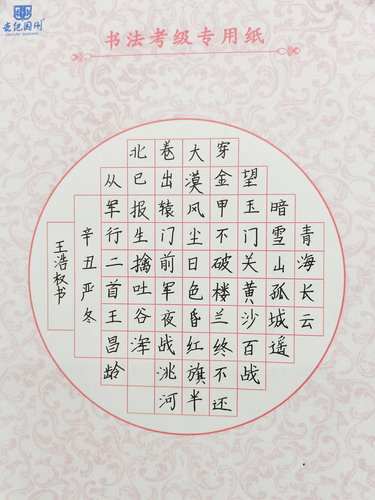 书法考级专用纸
青海长云
暗雪山孤城遥
望玉门关黄沙百战
穿金甲不破楼兰终不还
大漠风尘日色昏红旗半
卷出辕门前军夜战洮河
北已报生擒吐谷浑
从军行二首王昌龄
辛丑严冬
王浩权书